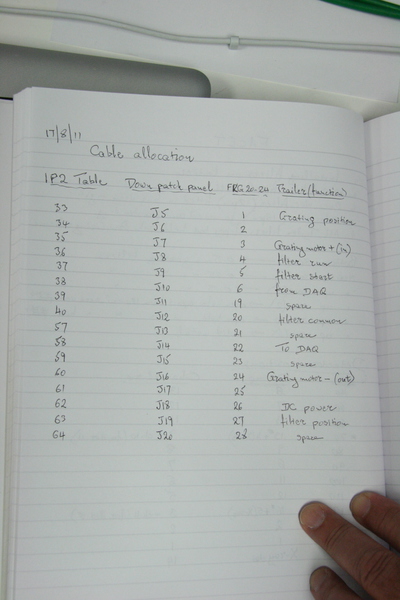 17/8/11
Cable allocation
IP2 Table Down patch panel FRG 20-24 Trailer (function)
33 J5 1 Grating position
34 J6 2
35 J7 3 Grating motor + (in)
36 J8 4 filter run
37 J9 5 filter start
38 J10 6 from DAQ
39 J11 19 spare
40 J12 20 filter common
57 J13 21 spare
58 J14 22 To DAQ
59 J15 23 spare
60 J16 24 Grating motor - (out)
61 J17 25
62 J18 26 DC power
63 J19 27 filter position
64 J20 28 spare